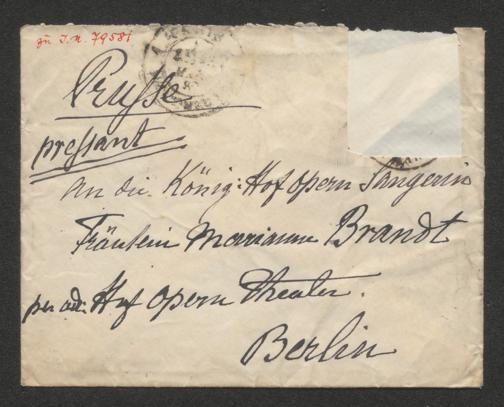 zu I.N. 79581
Prusse
pressant
An die König: Hof Opern Sängerin
Fräulein Marianne Brandt
per ad. Hof Opern Theater.
Berlin